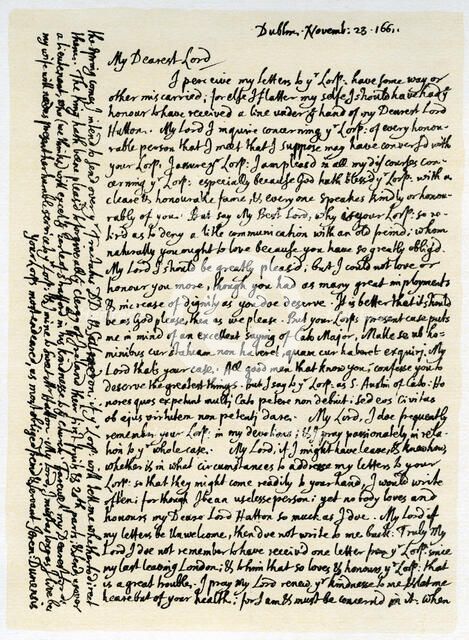 Dublin. Novemb: 23. 1661.
My Dearest Lord
I perceive my letters to yr Lorp: have some way or
other miscarried; for else I flatter my selfe I should have had ye
honour to have received a line under ye hand of my Dearest Lord
Hatton. My Lord I inquire concerning yr Lorp: of every honou-
rable person that I meet that I suppose may have convers'd with
your Lorp: I assure yr Lorp: I am pleasd in all my discourses con-
cerning yr Lorp: especially because God hath blessd yr Lorp: with a
cleare & honourable fame, & every one speakes kindly or honou-
rably of you. But say My Best Lord, why is your Lorp: so un-
kind as to deny a little communication with an old freind, whom
naturally you ought to love because you have so greatly obligd.
My Lord I should be greatly pleasd; but I could not love or
honour you more, though you had as many great imployments
& increase of dignity as you doe deserve. It is better that it should
be as God please, then as we please. But your Lorps present case puts
me in mind of an excellent saying of Cato Major, Malle se ab ho-
minibus cur statuam non haberet, quam cur haberet exquiri. My
Lord that's your case. All good men that know you, confesse you to
deserve the greatest things: but I say to yr Lorp: as S. Austin of Cato: Ho-
nores quos expetunt multi, Cato petere non debuit: sed eos Civitas
ob ejus virtutem non petenti dare. My Lord, I doe frequently
remember your Lorp: in my devotions; & I pray passionately in rela-
tion to yr whole case. My Lord, if I might have leave, & knew how,
whether & in what circumstances to addresse my letters to your
Lorp: so that they might come readily to your hand, I would write
often: for though I be an uselesse person; yet no body loves and
honours my Deare Lord Hatton so much as I doe. My Lord if
my letters be unwelcome, then doe not write to me back. Truly My
Lord I doe not remember to have received one letter from yr Lorp: since
my last leaving London; & to him that so loves & honours yr Lorp: that
is a great trouble. I pray my Lord renew yr kindnesse to me & let me
heare but of your health; for I am & must be concernd in it. when
the spring comes, I intend to send over yr
if yr Lorp: will tell me
them. The King hath
my wife
Your Lorps most indeared, as most obliged freind & servant